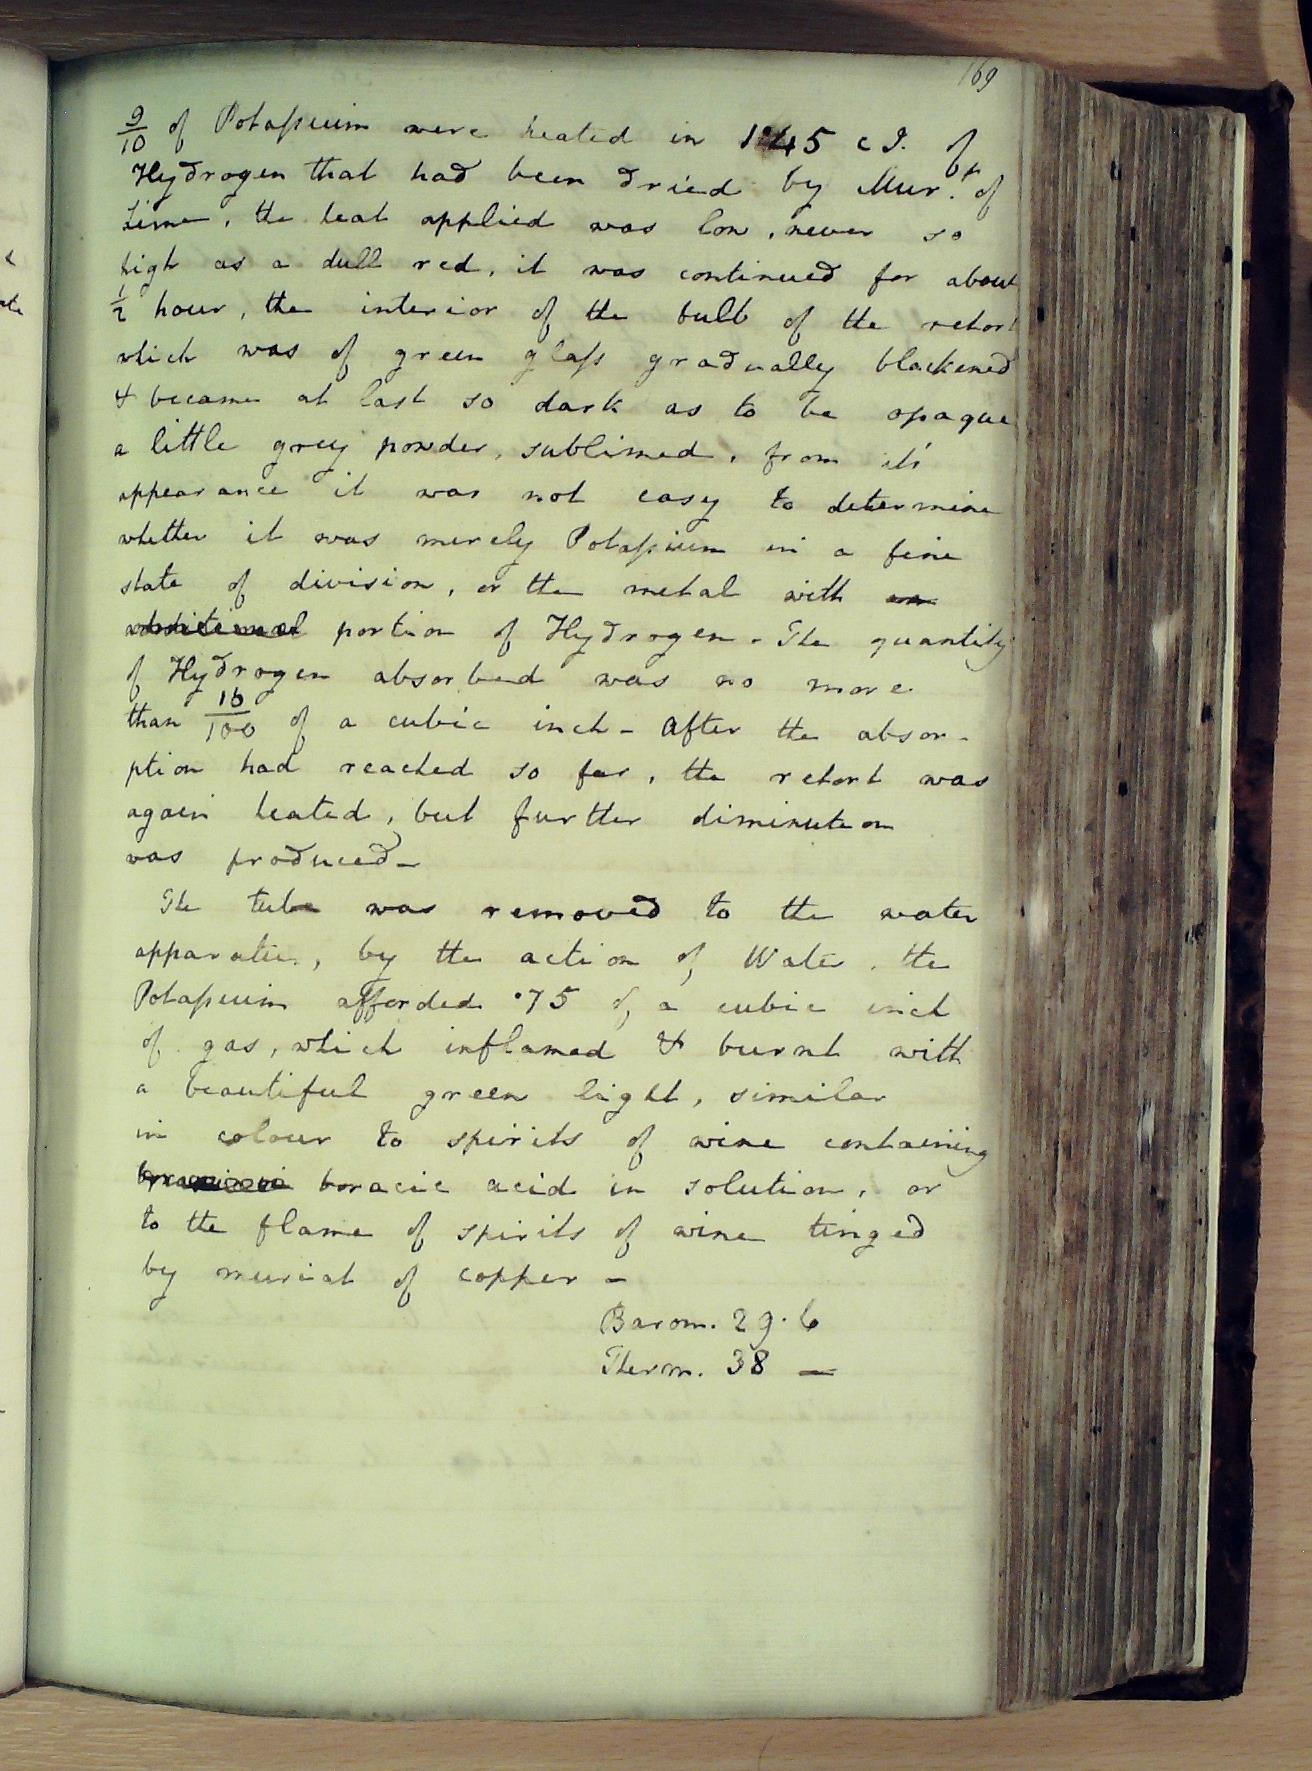 169
9/10 of Potassium were heated in 1.45 c I. of
Hydrogen that had been dried by Mur.t of
Lime, the heat applied was low, never so
high as a dull red, it was continued for about
1/2 hour, the interior of the bulb of the retort
which was of green glass gradually blackened
& became at last so dark as to be opaque
a little grey powder, sublimed, from its
appearance it was not easy to determine
whether it was merely Potassium in a fine
state of division, or the metal with an
additional portion of Hydrogen. The quantity
of Hydrogen absorbed was no more
than 16/100 of a cubic inch - After the absor-
ption had reached so far, the retort was
again heated, but further diminution
was produced -
The tube was removed to the water
apparatus, by the action of Water the
Potassium afforded .75 of a cubic inch
of gas, which inflamed & burnt with
a beautiful green light, similar
in colour to spirits of wine containing
boracic acid in solution, or
to the flame of spirits of wine tinged
by muriat of copper -
Barom. 29.6
Therm. 38 -